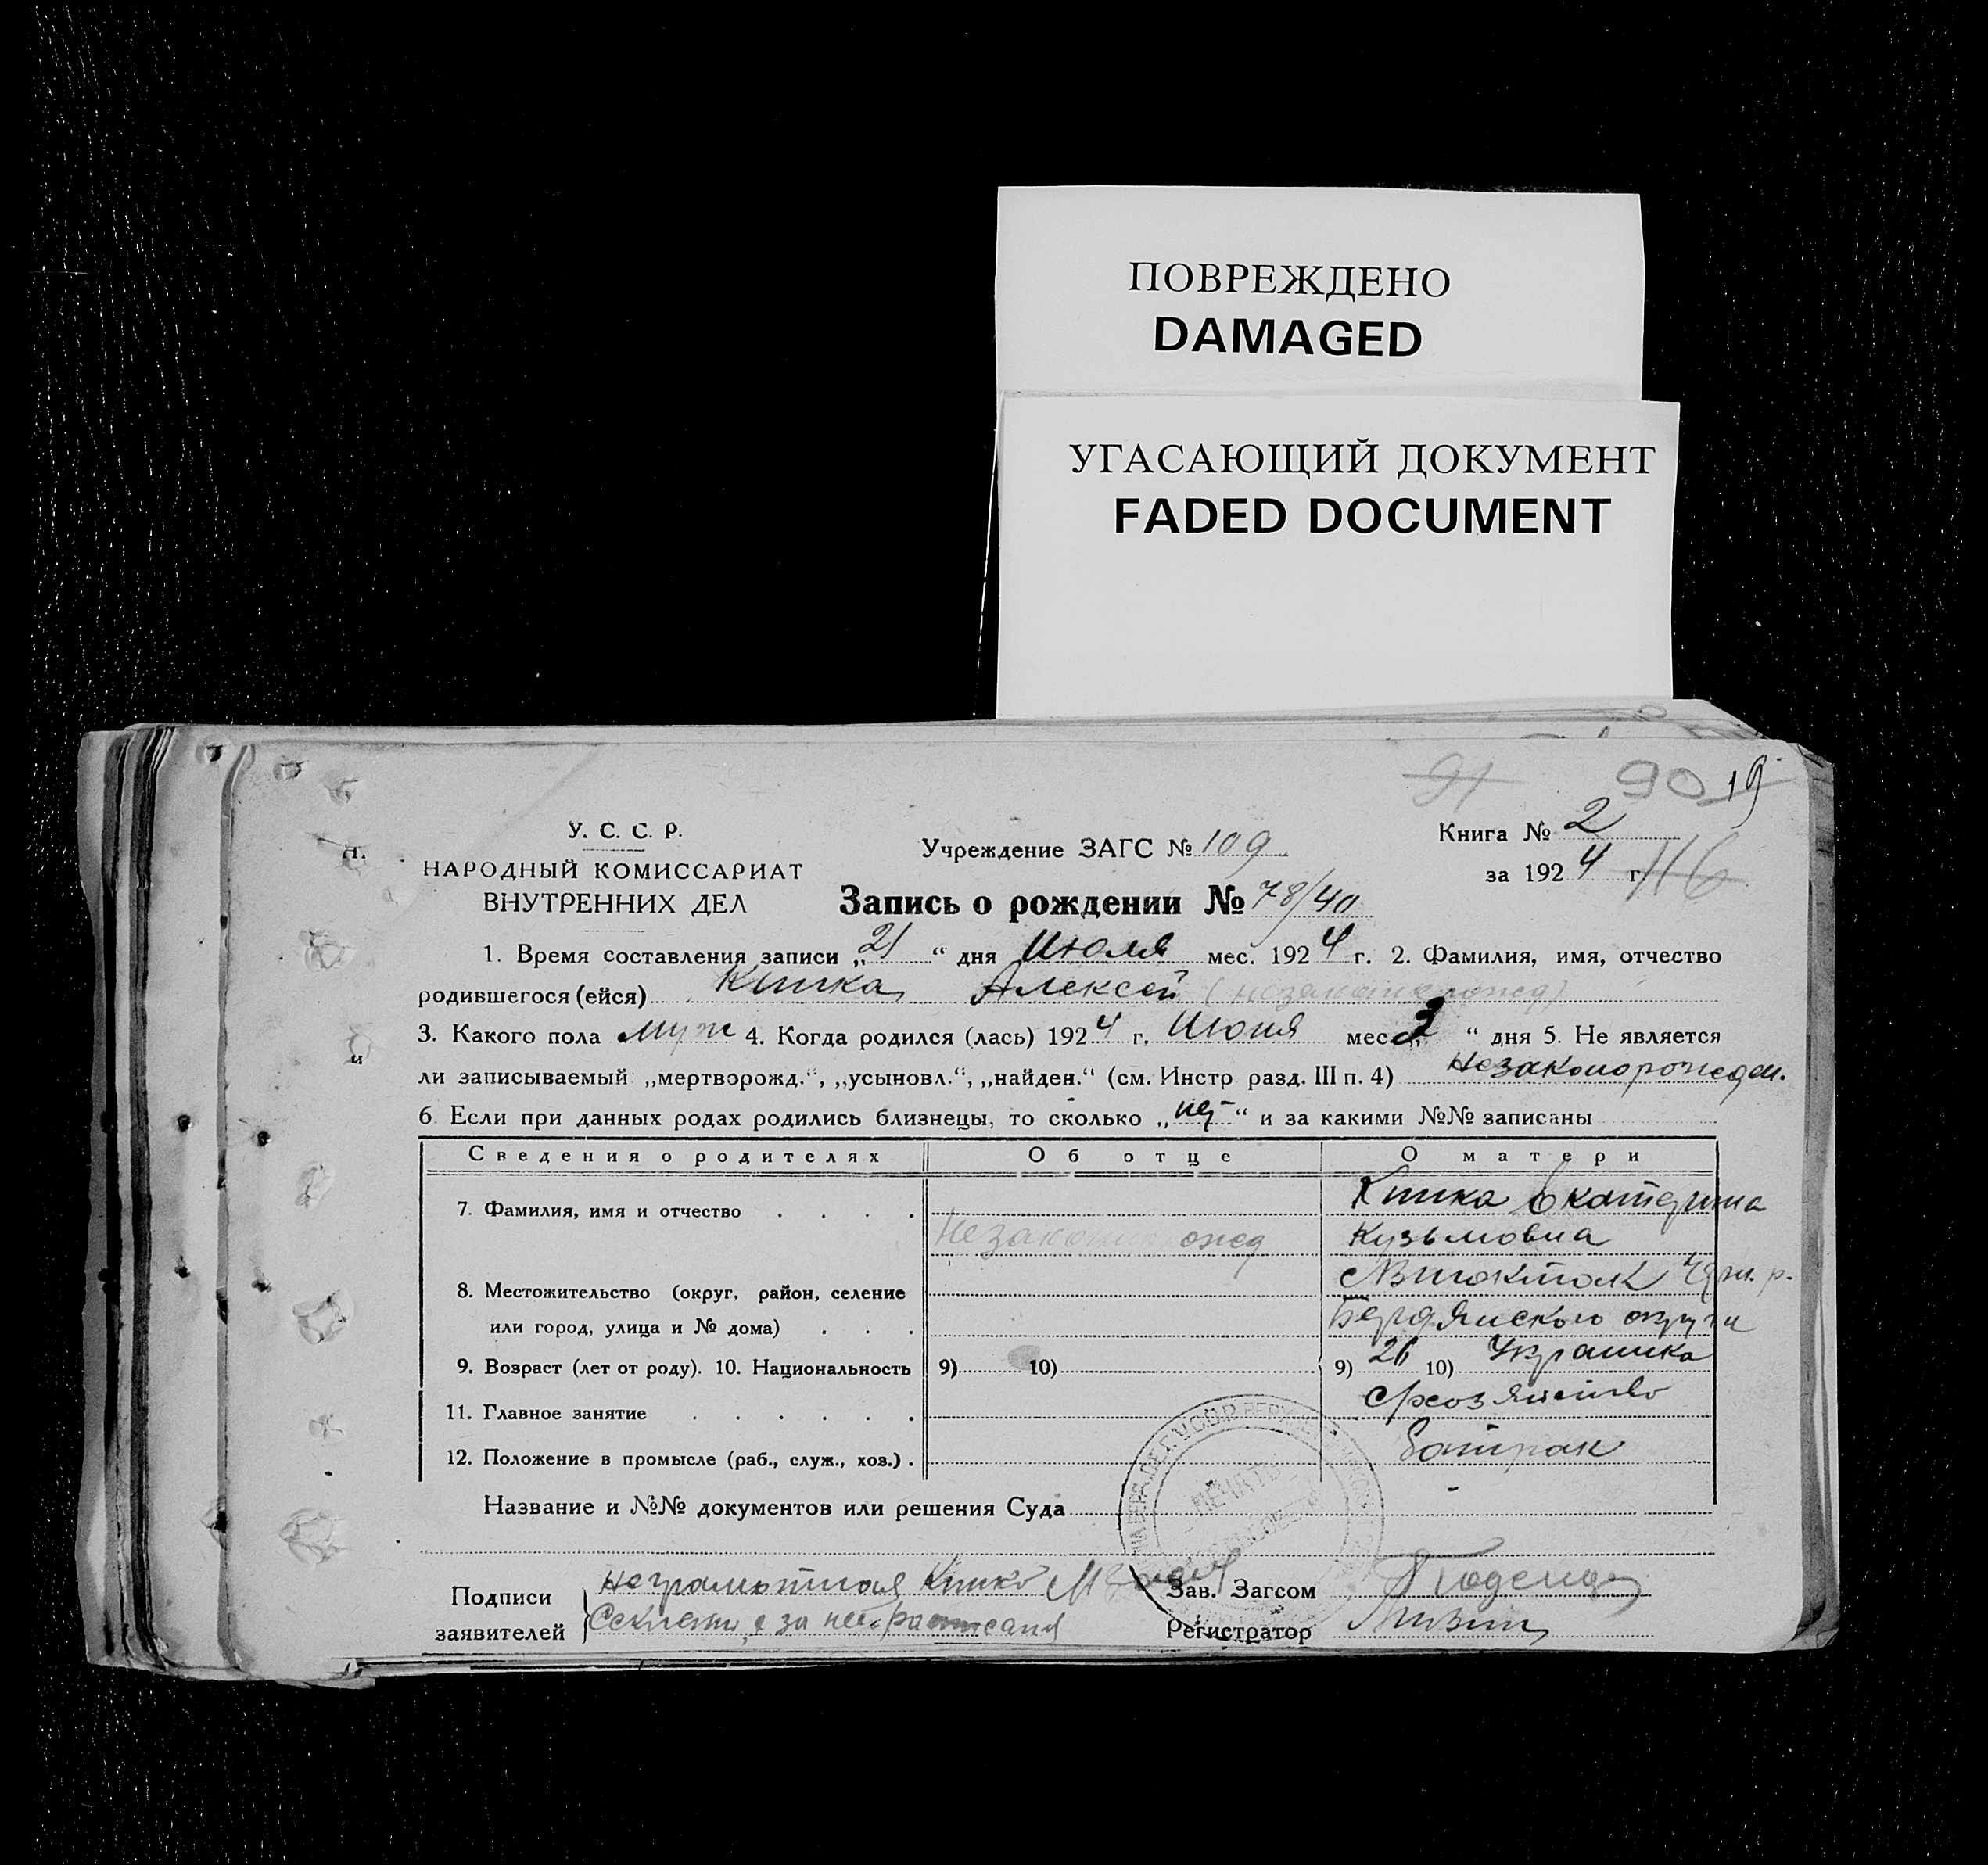 ПОВРЕЖДЕНО
DAMAGED
УГАСАЮЩИЙ ДОКУМЕНТ
FADED DOCUMENT
91 90 19
У. С. С. Р.
НАРОДНЫЙ КОМИССАРИАТ
ВНУТРЕННИХ ДЕЛ
Учреждение ЗАГС № 109
Книга № 2
за 1924 г. 116
Запись о рождении № 78/40
1. Время составления записи „21“ дня Июля мес. 1924 г. 2. Фамилия, имя, отчество
родившегося (ейся) Кишка Алексей (незаконорожд)
3. Какого пола муж 4. Когда родился (лась) 1924 г. Июня мес. „2“ дня 5. Не является
ли записываемый „мертворожд.“, „усыновл.“, „найден.“ (см. Инстр разд. III п. 4) Незаконорожден.
6 Если при данных родах родились близнецы, то сколько „нет“ и за какими №№ записаны
Сведения о родителях Об отце О матери
7. Фамилия, имя и отчество Кишка Екатерина
Незаконорожд Кузьмовна
8. Местожительство (округ, район, селение
или город, улица и № дома) Бердянского округа
9. Возраст (лет от роду). 10. Национальность 9) 10) 9) 26 10) Украинка
11. Главное занятие
12. Положение в промысле (раб., служ., хоз.) батрак
Название и №№ документов или решения Суда
ПЕЧАТЬ
Подписи неграмотная Кишко Зав. Загсом
заявителей за нее расписался Регистратор